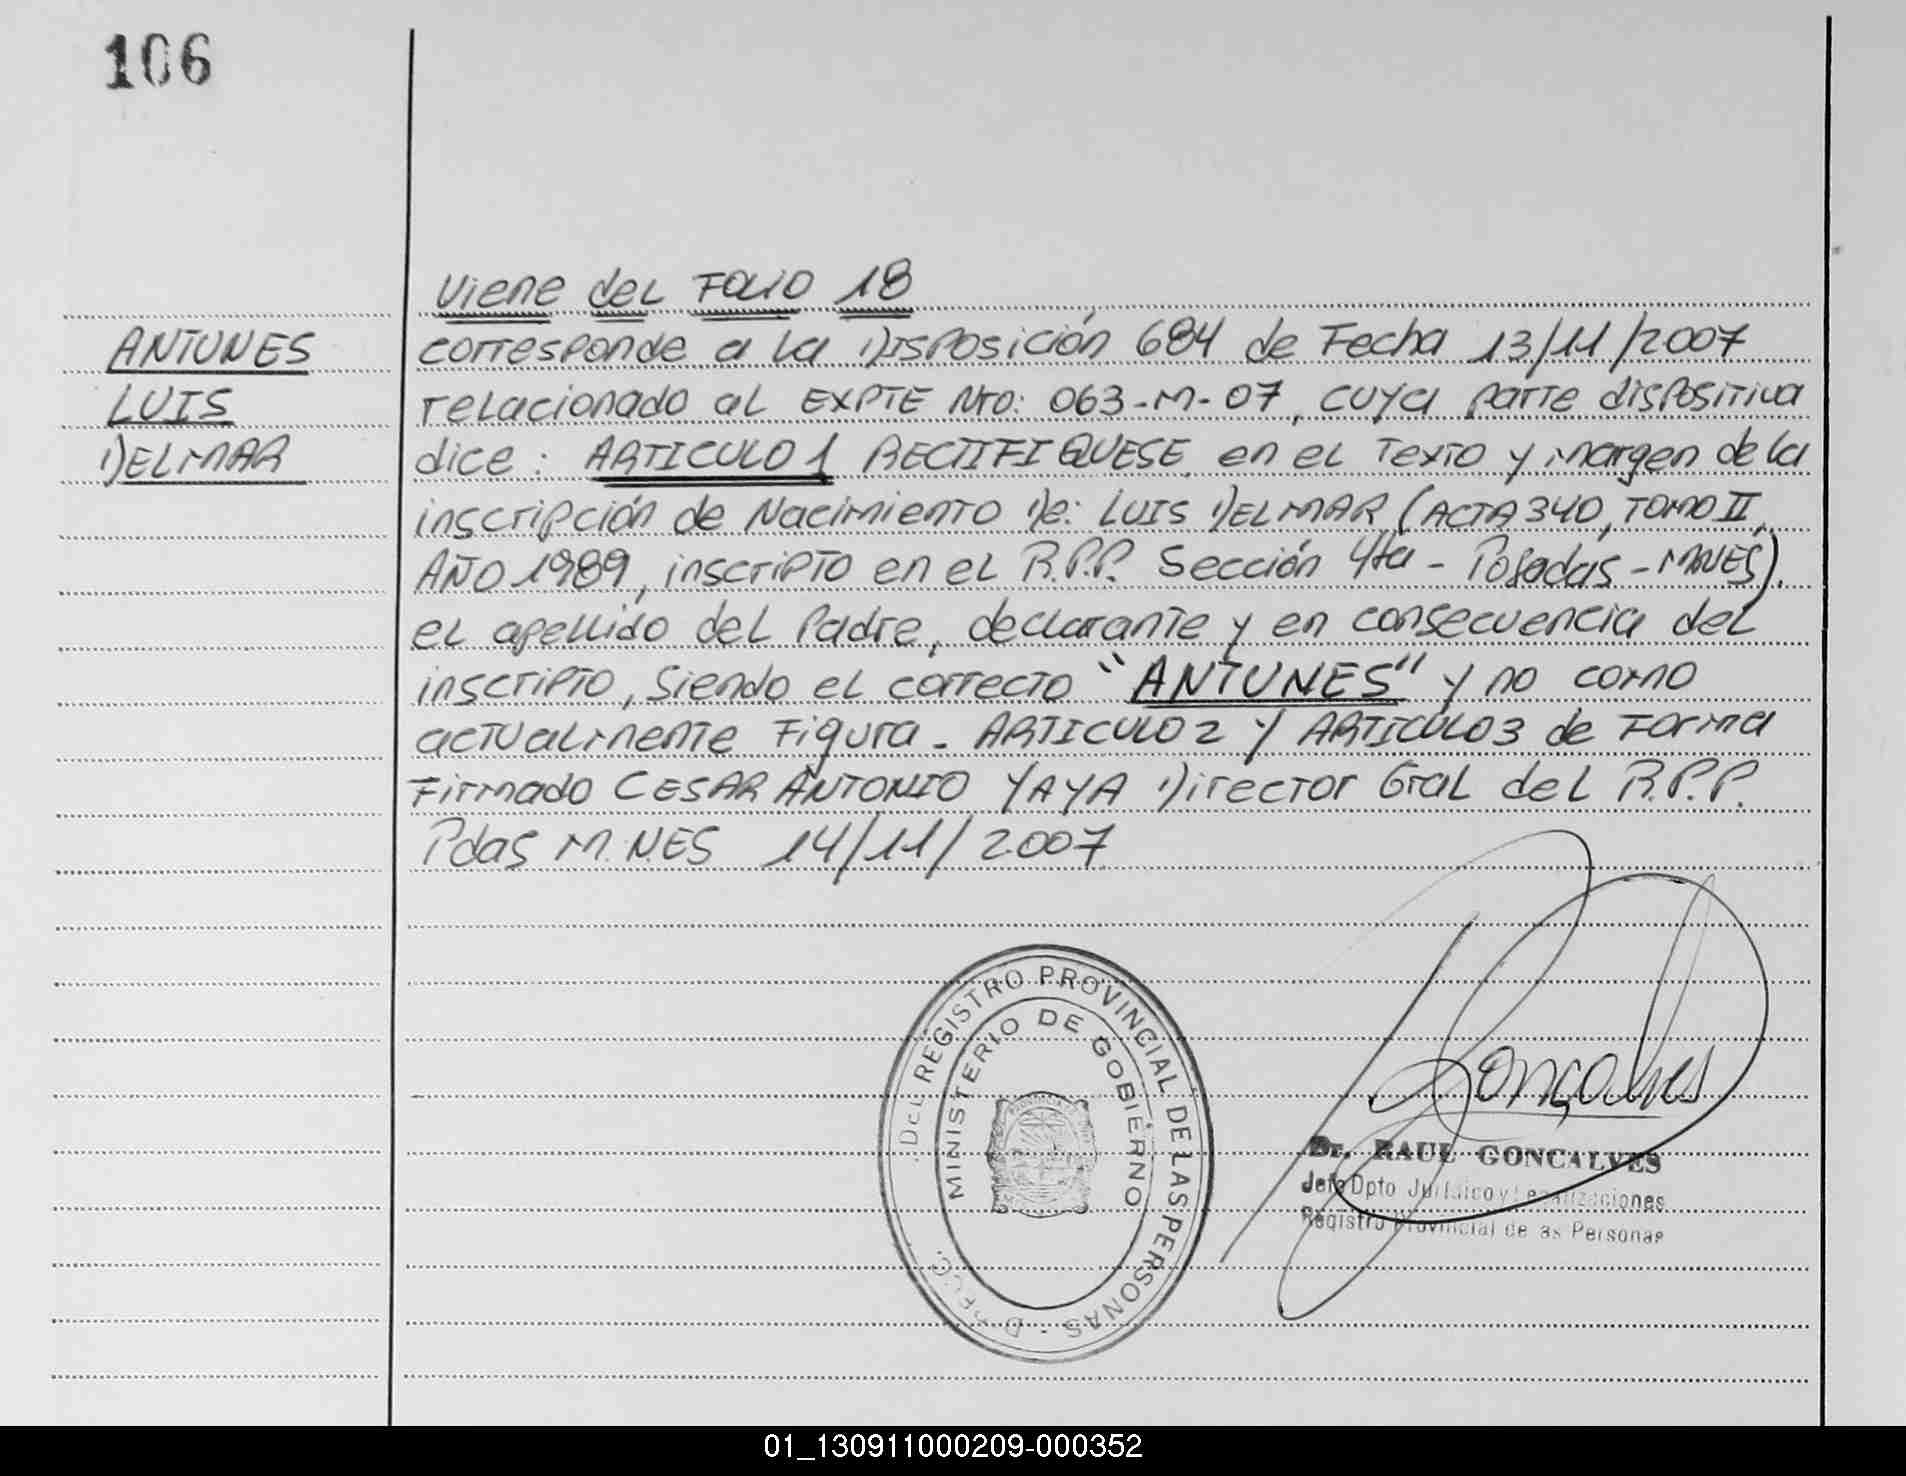 106
Viene del Folio 18
ANTUNES
LUIS
DELMAR
corresponde a la Disposición 684 de Fecha 13/11/2007
relacionado al EXPTE Nro: 063-M-07, cuya parte dispositiva
dice: ARTICULO 1 RECTIFIQUESE, en el Texto y margen de la
inscripción de Nacimiento De: LUIS DELMAR (ACTA 340, TOMO II,
AÑO 1989, inscripto en el R.P.P. Sección 4ta - Posadas - MNES).
el apellido del Padre, declarante y en consecuencia del
inscripto, siendo el correcto "ANTUNES" y no como
actualmente Figura. ARTICULO 2 Y ARTICULO 3 de Forma
Firmado CESAR ANTONIO YAYA Director Gral del R.P.P.
Pdas M.NES 14/11/2007
DEL REGISTRO PROVINCIAL DE LAS PERSONAS
MINISTERIO DE GOBIERNO
Gonçalves
Dr. RAUL GONCALVES
Jefe Dpto Jurídico y Legalizaciones
Registro Provincial de as Personas
01_130911000209-000352